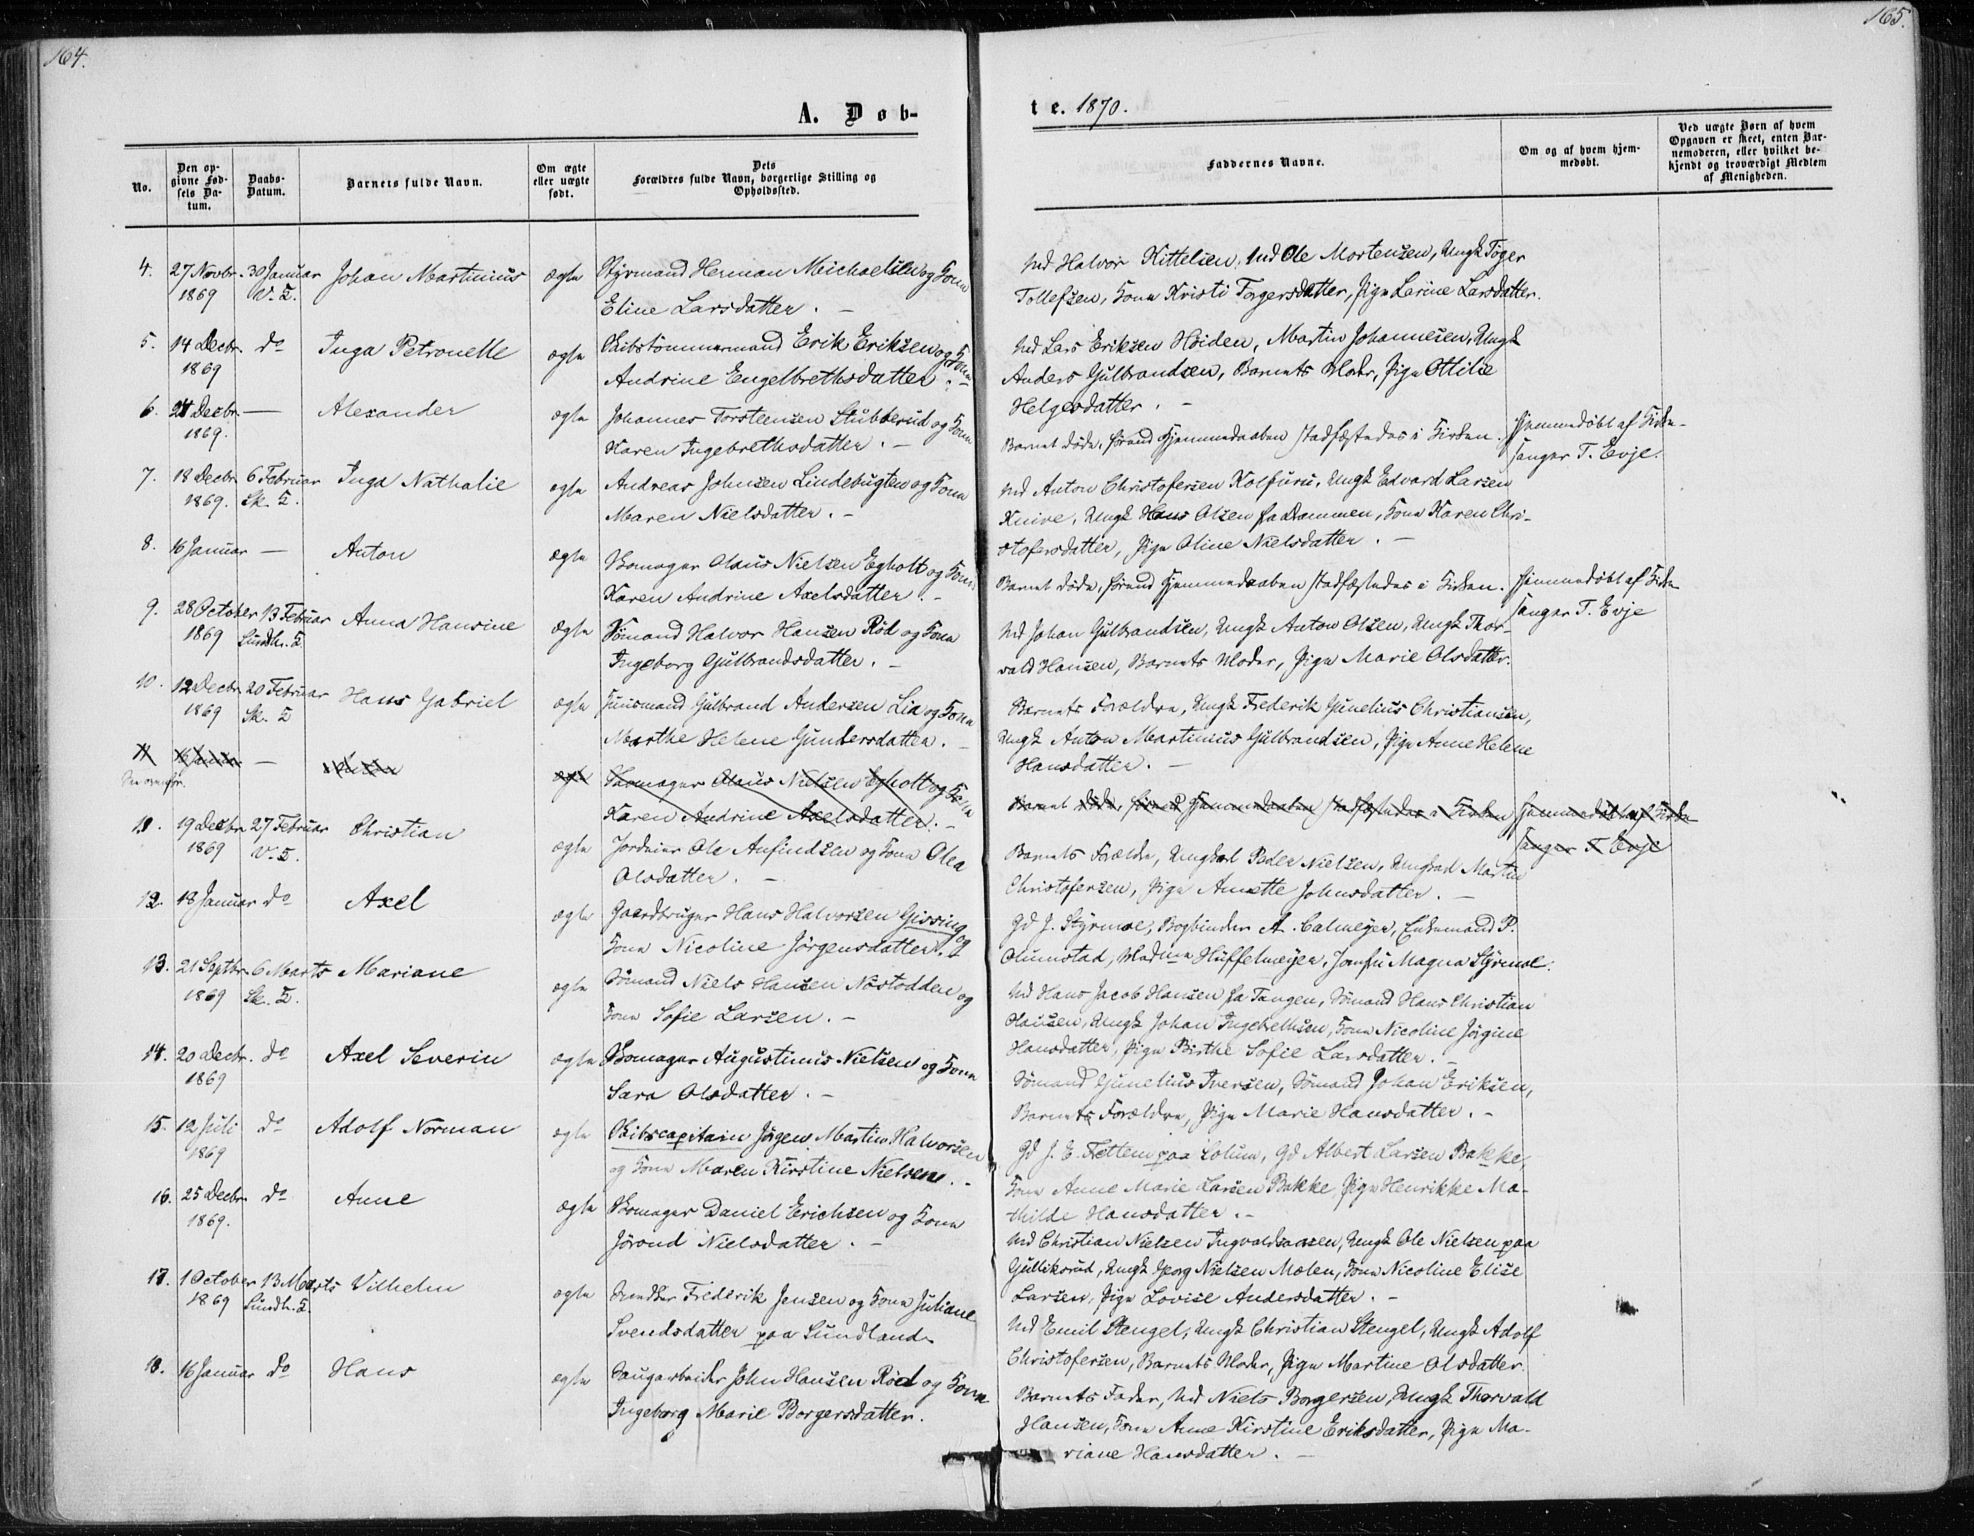 164.
165.
A. Døb-
te. 1870.
No.
Den op-
givne Fød-
sels Da-
tum.
Daabs-
Datum.
Barnets fulde Navn.
Om ægte
eller uægte
født.
Dets
Forældres fulde Navn, borgerlige Stilling og
Opholdssted.
Faddernes Navne.
Om og af hvem hjem-
medøbt.
Ved uægte Børn af hvem
Opgaven er skeet, enten Bar-
nemoderen, eller hvilket be-
kjendt og troværdigt Medlem
af Menigheden.
4. 27 Novbr. 30 Januar Johan Martinius ægte Styrmand Herman Michaelsen og Kone
1869 V. K.
Eline Larsdatter. —
Md Halvor Kittelsen, Md Ole Mortensen, Ungk Tøger
Tollefsen, Kone Kristi Torgersdatter, Pige Larine Larsdatter.
5. 14 Decbr. do Inga Petronelle ægte Skibstømmermand Erik Eriksen og Kone
1869
Andrine Engelbrethsdatter. —
Md Lars Eriksen Høiden, Martin Johannesen, Ungk
Anders Gulbrandsen, Barnets Moder, Pige Ottilie
Helgesdatter. —
6. 21 Decbr. — Alexander ægte Johannes Torsteensen Stubberud og Kone
1869.
Karen Ingebrethsdatter. —
Barnet døde, førend Hjemmedaaben stadfæstedes i Kirken. Hjemmedøbt af Kirke-
sanger T. Evje.
7. 18 Decbr. 6 Februar Inga Nathalie ægte Andreas Johnsen Lindebugten og Kone
1869. Sk. K.
Maren Nielsdatter. —
Md Anton Christofersen Kolfuru, Ungk Edvard Larsen
Knive, Ungk Hans Olsen fra Dammen, Kone Karen Chri-
stofersdatter, Pige Oline Nielsdatter. —
8. 16 Januar — Anton ægte Skomager Olaus Nielsen Egholt og Kone
Karen Andrine Axelsdatter. —
Barnet døde, førend Hjemmedaaben stadfæstedes i Kirken. Hjemmedøbt af Kirke-
sanger T. Evje
9. 28 October 13 Februar Anna Hansine ægte Sømand Halvor Hansen Rød og Kone
1869 Sundh. K
Ingeborg Gulbrandsdatter. —
Md Johan Gulbrandsen, Ungk Anton Olsen, Ungk Thor-
vald Hansen, Barnets Moder, Pige Marie Olsdatter.
10. 12 Decbr. 20 Februar Hans Gabriel ægte Huusmand Gulbrand Andersen Lia og Kone
1869 Sk. K
Marthe Helene Gundersdatter. —
Barnets Forældre, Ungk Frederik Gunelius Christiansen,
Ungk Anton Martinius Gulbrandsen, Pige Anne Helene
Hansdatter. —
11 16 Januar — Anton ægte Skomager Olaus Nielsen Egholt og Kone
Se ovenfor.
Karen Andrine Axelsdatter. —
Barnet døde, førend Hjemmedaaben stadfæstedes i Kirken Hjemmedøbt af Kirke-
sanger T. Evje
11. 19 Decbr. 27 Februar Christian ægte Jordeier Ole Anfindsen og Kone Olea
1869 V. K.
Olsdatter. —
Barnets Forældre, Ungkarl Peder Nielsen, Ungkarl Martin
Christofersen, Pige Annette Johnsdatter. —
12. 18 Januar do Axel ægte Gaardbruger Hans Halvorsen Gissing og
Kone Nicoline Jørgensdatter. —
Gd J. Styrmoe, Bogbinder A. Calmeyer, Enkemand P.
Olumstad, Madme Huffelmeyer, Jomfru Magna Styrmoe.
13. 21 Septbr. 6 Marts Mariane ægte Sømand Niels Hansen Næstodden og
1869 Sk. K.
Kone Sofie Larsen. —
Md Hans Jacob Hansen fra Tangen, Sømand Hans Christian
Hansen, Ungk Johan Ingebrethsen, Kone Nicoline Jørgine
Hansdatter, Pige Birthe Sofie Larsdatter. —
14. 20 Decbr. do Axel Severin ægte Skomager Augustinus Nielsen og Kone
1869
Sara Olsdatter. —
Sømand Gunelius Iversen, Sømand Johan Eriksen,
Barnets Forældre, Pige Marie Hansdatter. —
15. 12 Juli do Adolf Norman ægte Skibscapitain Jørgen Martin Halvorsen
1869
og Kone Maren Kirstine Nielsen. —
Gd J. E. Fettem paa Solum, Gd Albert Larsen Bakke,
Kone Anne Marie Larsen Bakke, Pige Henrikke Ma-
thilde Hansdatter. —
16. 25 Decbr. do Anne ægte Skomager Daniel Erichsen og Kone
1869.
Jørond Nielsdatter. —
Md Christian Nielsen Ingvaldsaasen, Ungk Ole Nielsen paa
Gulliksrud, Ungk Georg Nielsen Mælen, Kone Nicoline Elise
Larsen, Pige Lovise Andersdatter. —
17. 1 October 13 Marts Vilhelm ægte Snedker Frederik Jensen og Kone Juliane
1869 Sundh. K.
Svendsdatter paa Sundland
Md Emil Stengel, Ungk Christian Stengel, Ungk Adolf
Christofersen, Barnets Moder, Pige Martine Olsdatter.
18. 16 Januar do Hans ægte Saugarbeider John Hansen Rød og Kone
Ingeborg Marie Borgersdatter.
Barnets Fader, Md Niels Borgersen, Ungk Thorvald
Hansen, Kone Anne Kirstine Eriksdatter, Pige Ma-
riane Hansdatter. —